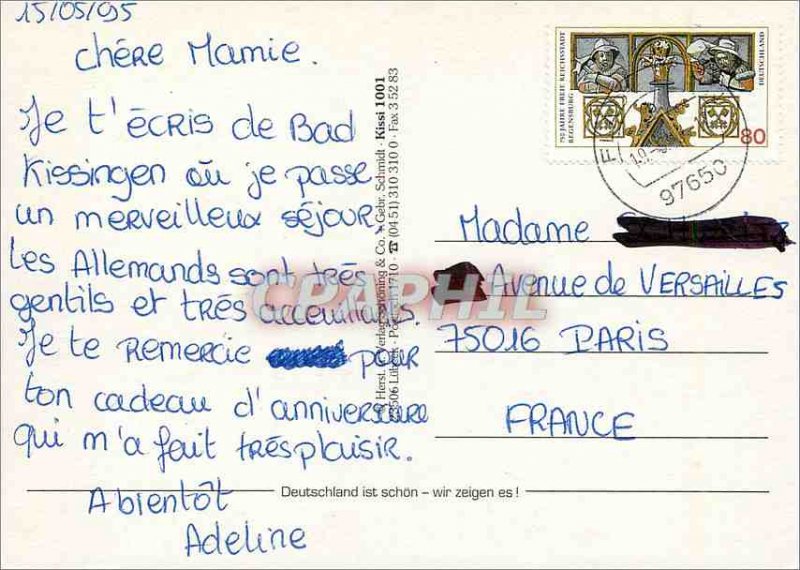 15/05/95
chère Mamie.
Je t'écris de Bad
Kissingen où je passe
un merveilleux séjour,
Les Allemands sont très
gentils et très acceuillants.
Je te remercie pour
ton cadeau d'anniversaire
qui m'a fait très plaisir.
A bientôt
Adeline
Kissl 1001
Gebr. Schmidt · Fax 3 52 83
(04 51) 310 310 0
750 JAHRE FREIE REICHSSTADT
REGENSBURG
DEUTSCHLAND
80
97650
Madame
Avenue de VERSAILLES
75016 PARIS
FRANCE
Deutschland ist schön – wir zeigen es !
CPAPHIL